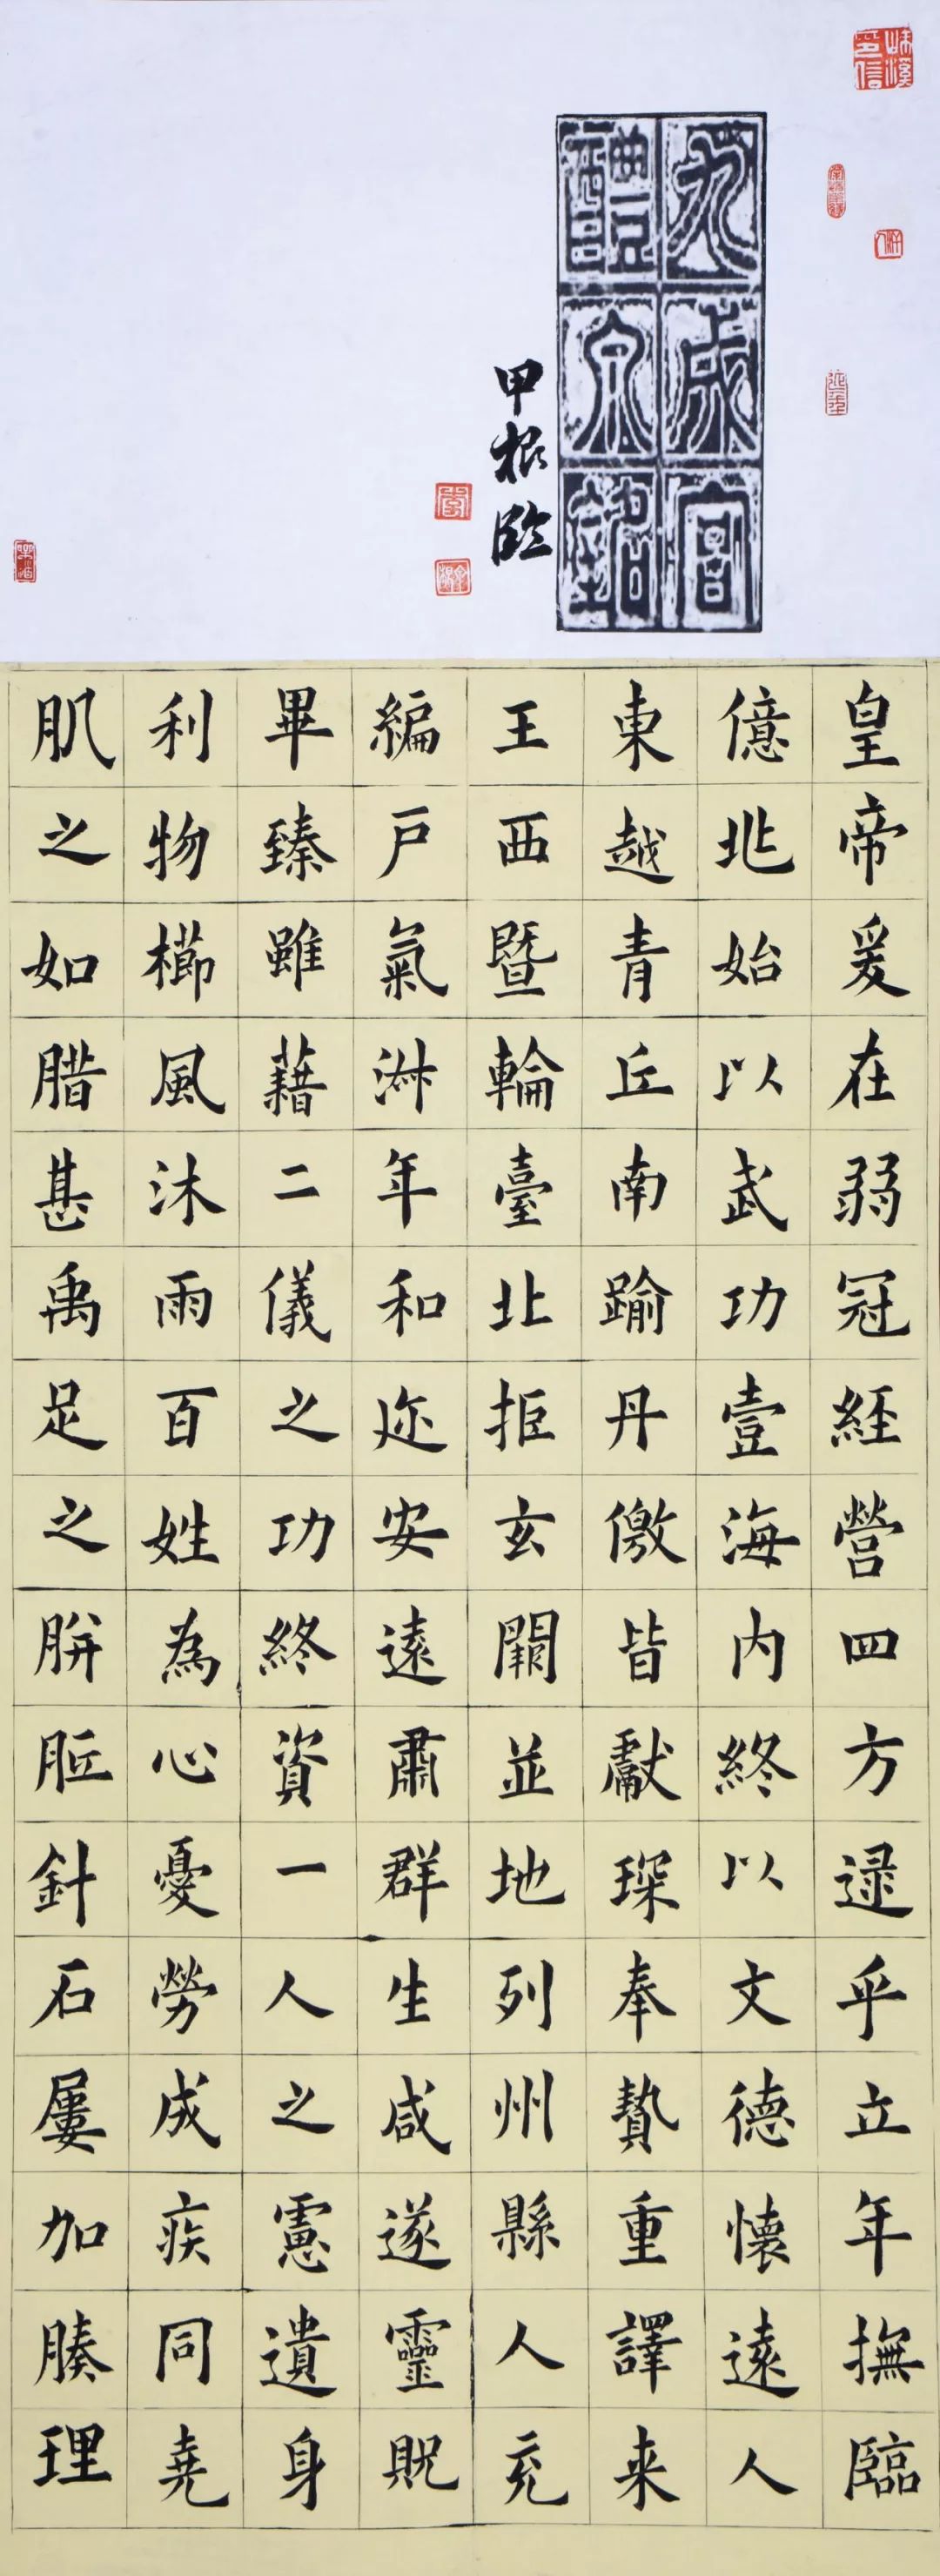 九成宮
醴泉銘
甲根臨
皇帝爰在弱冠經營四方逯乎立年撫臨
億兆始以武功壹海内終以文德懷遠人
東越青丘南踰丹儌皆獻琛奉贄重譯来
王西暨輪臺北拒玄闕並地列州縣人充
編戶氣淋年和迩安遠肅群生咸遂靈貺
畢臻雖藉二儀之功終資一人之慮遺身
利物櫛風沐雨百姓為心憂勞成疾同堯
肌之如腊甚禹足之胼胝針石屢加腠理